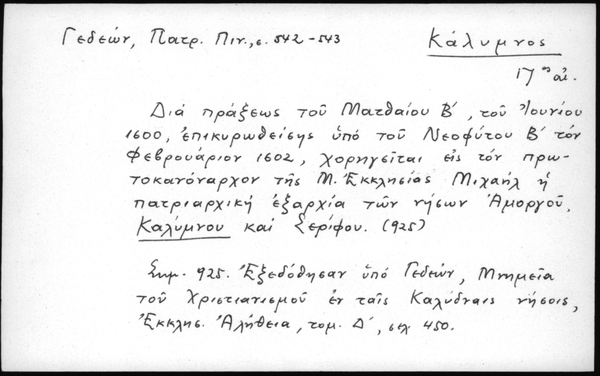 Γεδεών, Πατρ. Πιν., σ. 542-543
Κάλυμνος
17ος αἰ.
Διά πράξεως τοῦ Ματθαίου Β΄, τοῦ Ἰουνίου
1600, ἐπικυρωθείσης ὑπό τοῦ Νεοφύτου Β΄ τόν
Φεβρουάριον 1602, χορηγεῖται εἰς τόν πρω-
τοκανόναρχον τῆς Μ. Ἐκκλησίας Μιχαήλ ἡ
πατριαρχική ἐξαρχία τῶν νήσων Ἀμοργοῦ,
Καλύμνου καί Σερίφου. (925)
Σημ. 925. Ἐξεδόθησαν ὑπό Γεδεών, Μνημεῖα
τοῦ Χριστιανισμοῦ ἐν ταῖς Καλύδναις νήσοις,
Ἐκκλησ. Ἀλήθεια, τομ. Δ΄, σελ 450.